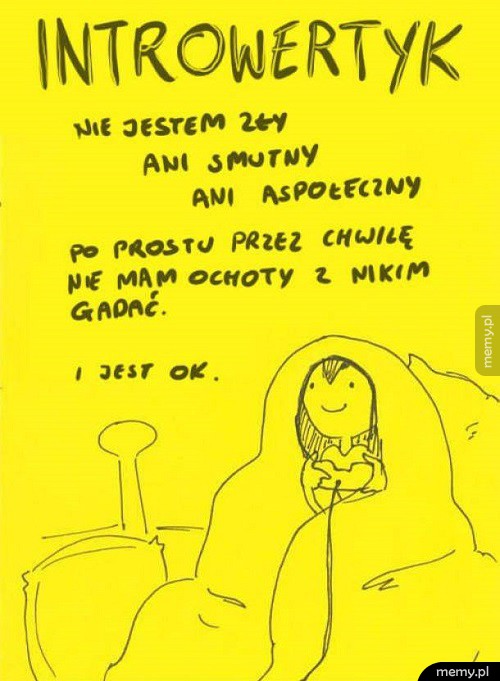 INTROWERTYK
NIE JESTEM ZŁY
ANI SMUTNY
ANI ASPOŁECZNY
PO PROSTU PRZEZ CHWILĘ
NIE MAM OCHOTY Z NIKIM
GADAĆ.
I JEST OK.
memy.pl
memy.pl